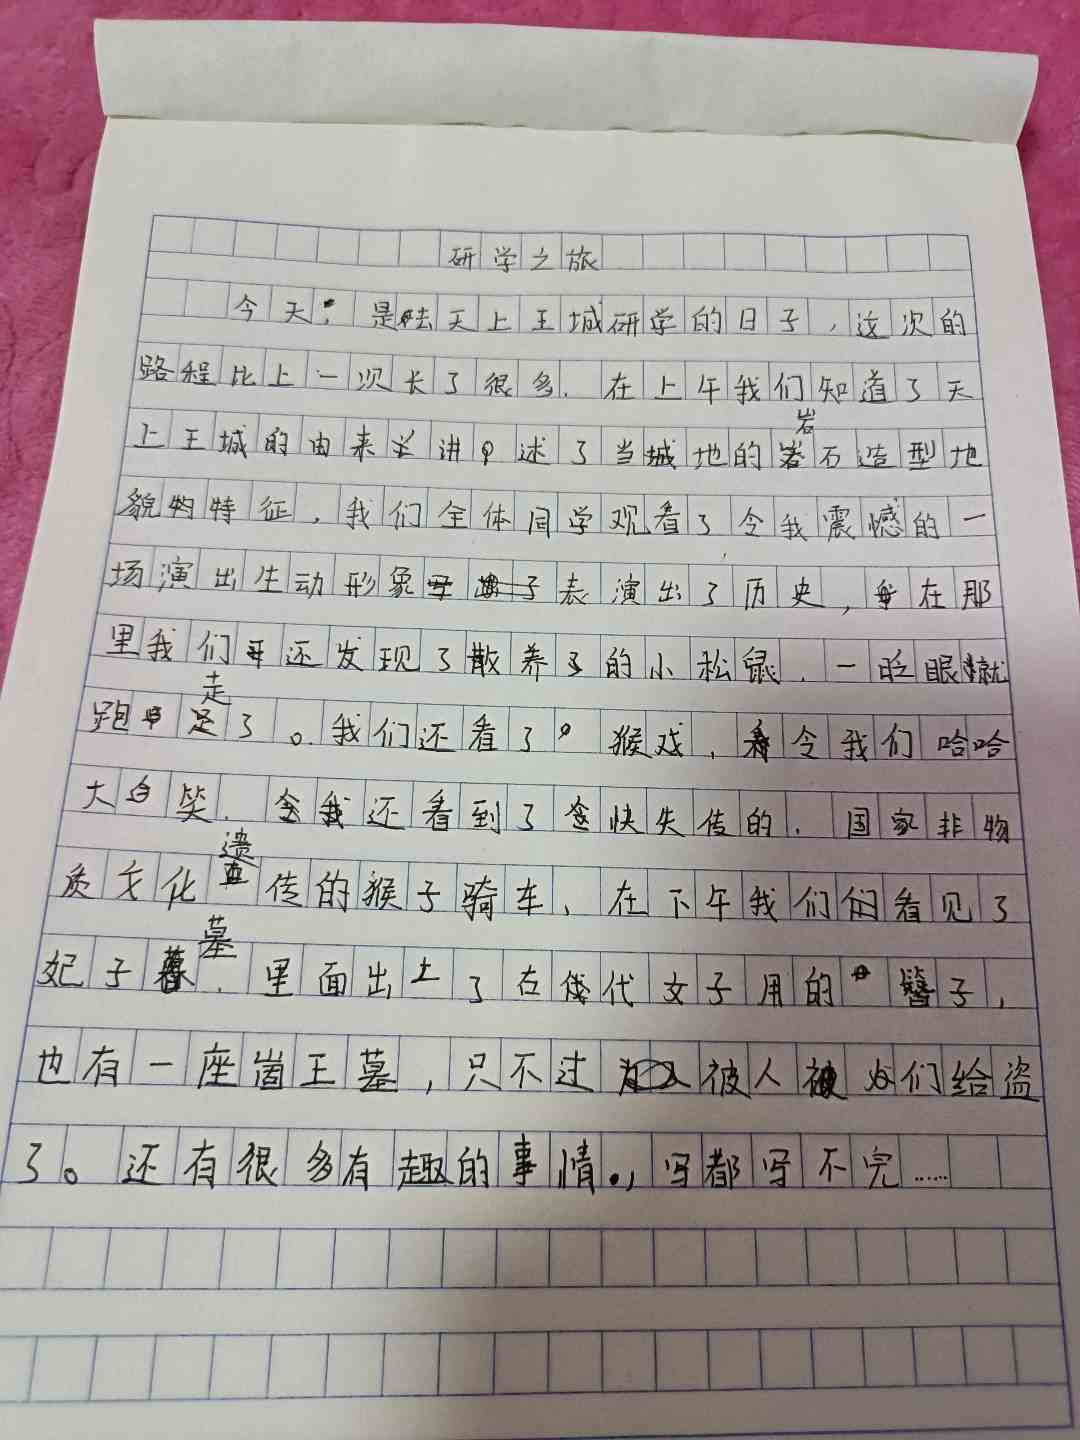 研学之旅
今天,是去天上王城研学的日子,这次的
路程比上一次长了很多.在上午我们知道了天
上王城的由来讲述了当地的岩石造型地
貌特征,我们全体同学观看了令我震憾的一
场演出生动形象表演出了历史,在那
里我们还发现了散养的小松鼠.一眨眼就
跑走了。我们还看了猴戏,令我们哈哈
大笑.我还看到了快失传的.国家非物
质文化遗传的猴子骑车、在下午我们看见了
妃子墓.里面出土了古代女子用的簪子,
也有一座崮王墓,只不过被人们给盗
了。还有很多有趣的事情,写都写不完……